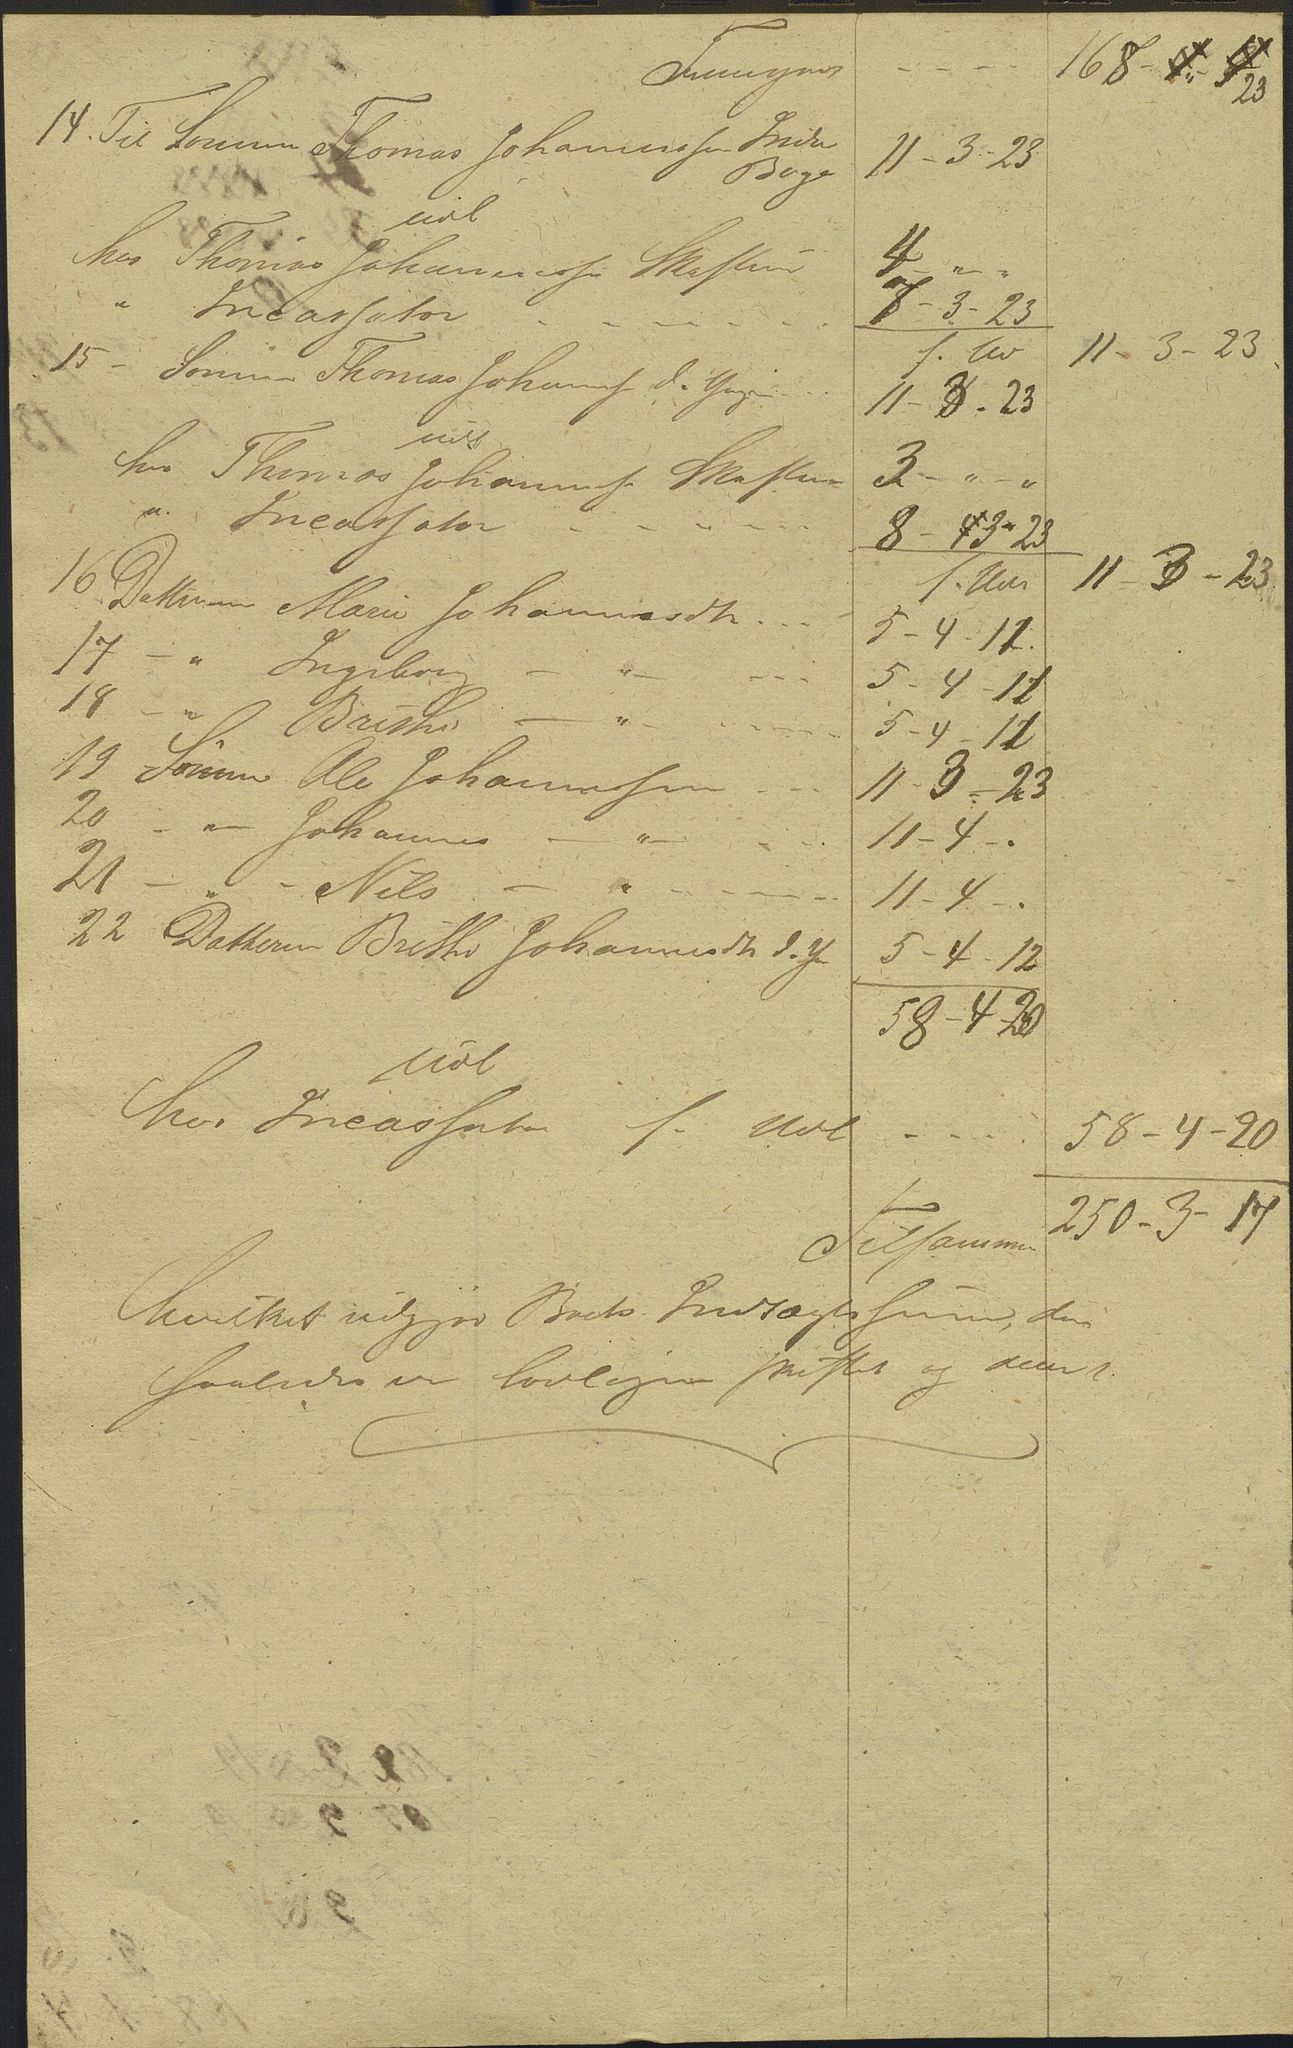 Transport - - - - 168 - " - 23
14. Til Sønnen Thomas Johannessen Indre 11 - 3 - 23
Bøge
udl
hos Thomas Johannessen 4 - " - "
" Incassator - - - - - - 7 - 3 - 23
f. Udl 11 - 3 - 23
15 - Sønnen Thomas Johannes. d. Yngre - - - 11 - 3 - 23
udl
hos Thomas Johannes. 3 - " - "
" Incassator - - - - - - 8 - 3 - 23
f. Udl 11 - 3 - 23
16 Datteren Marie Johannesdtr - - - 5 - 4 - 12
17 - " Ingeborg - " - - - - 5 - 4 - 12
18 - " Brithe - " - - - - - 5 - 4 - 12
19 Sønnen Ole Johannessen - - - 11 - 3 - 23
20 - " - Johannes - " - - - - 11 - 4 - .
21 - " - Nils - " - - - - - - 11 - 4 - .
22 Datteren Brithe Johannesdtr d. Y. 5 - 4 - 12
58 - 4 - 20
udl
hos Incassator f. Udl - - - - 58 - 4 - 20
Tilsammen 250 - 3 - 17
hvilket udgjør Boets Indtægtssum, der
saaledes er lovligen skiftet og deelt.